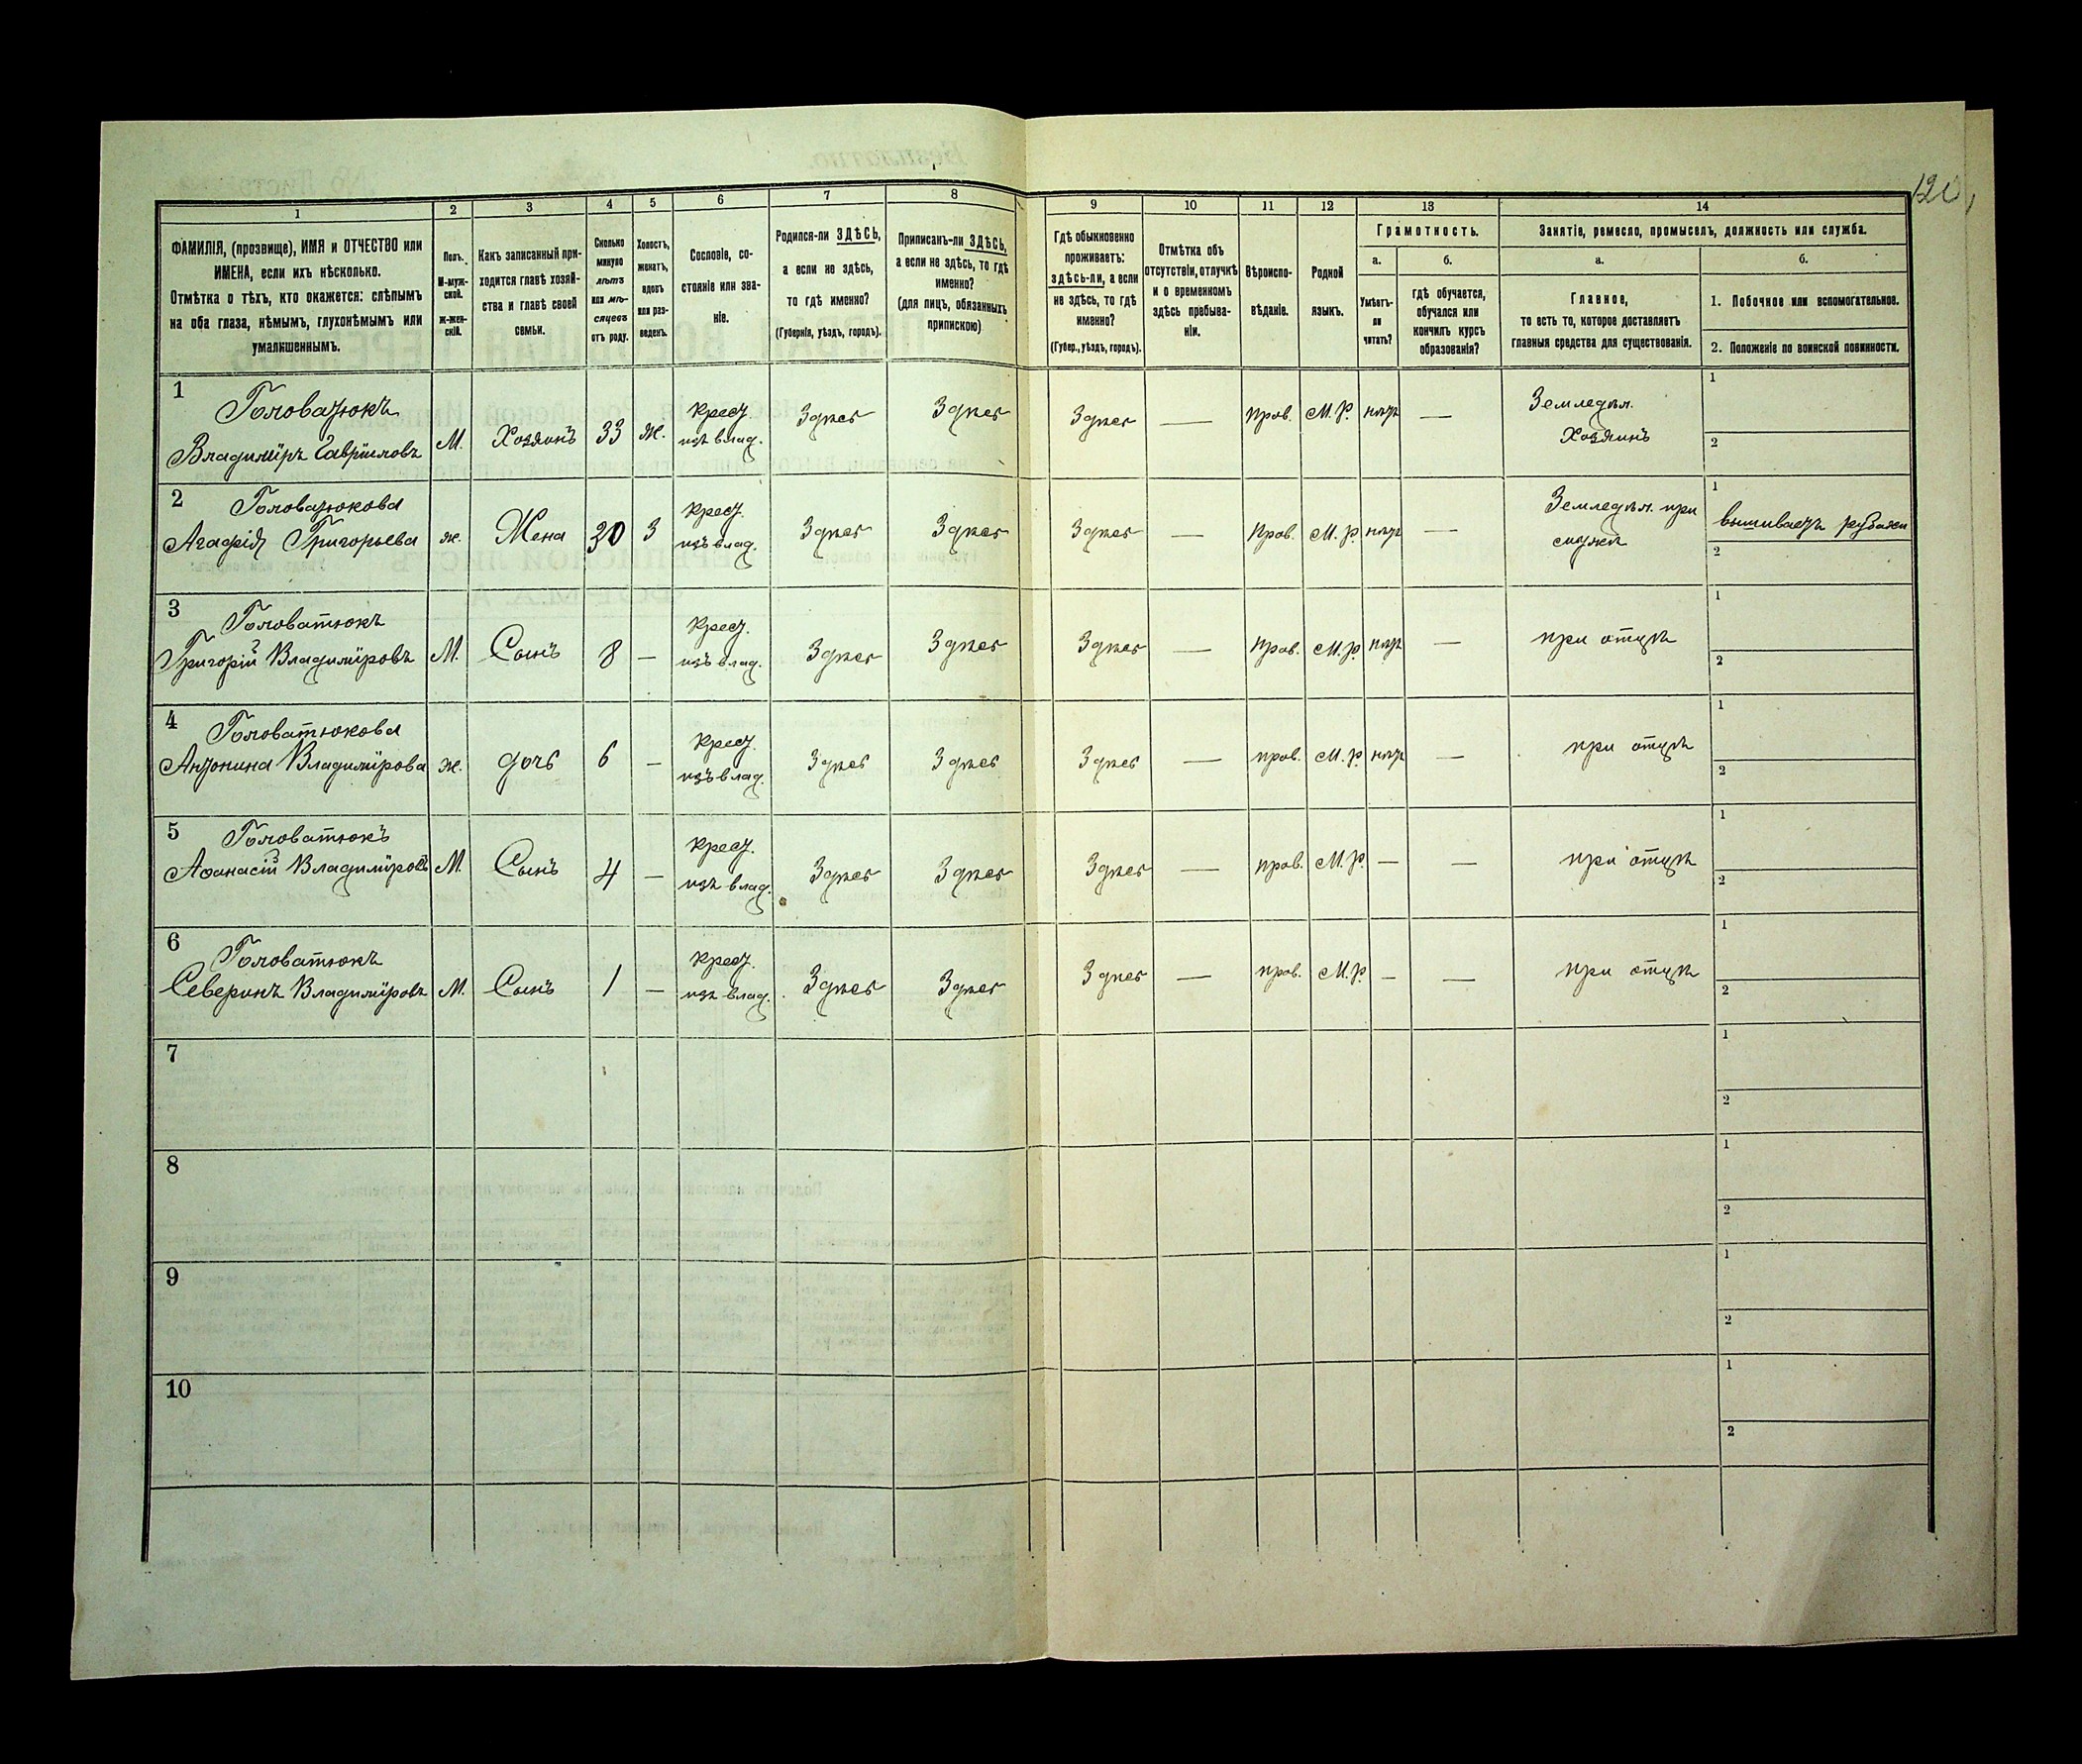 120
1
2
3
4
5
6
7
8
9
10
11
12
13
14
ФАМИЛІЯ, (прозвище), ИМЯ и ОТЧЕСТВО или
ИМЕНА, если ихъ нѣсколько.
Отмѣтка о тѣхъ, кто окажется: слѣпымъ
на оба глаза, нѣмымъ, глухонѣмымъ или
умалишеннымъ.
Полъ.
М-муж-
ской.
ж-жен-
скій.
Какъ записанный при-
ходится главѣ хозяй-
ства и главѣ своей
семьи.
Сколько
минуло
лѣтъ
или мѣ-
сяцевъ
отъ роду.
Холостъ,
женатъ,
вдовъ
или раз-
веденъ.
Сословіе, со-
стояніе или зва-
ніе.
Родился-ли ЗДѢСЬ,
а если не здѣсь,
то гдѣ именно?
(Губернія, уѣздъ, городъ).
Приписанъ-ли ЗДѢСЬ,
а если не здѣсь, то гдѣ
именно?
(для лицъ, обязанныхъ
припискою)
Гдѣ обыкновенно
проживаетъ:
здѣсь-ли, а если
не здѣсь, то гдѣ
именно?
(Губер., уѣздъ, городъ).
Отмѣтка объ
отсутствіи, отлучкѣ
и о временномъ
здѣсь пребыва-
ніи.
Вѣроиспо-
вѣданіе.
Родной
языкъ.
Грамотность.
а.
б.
Умѣетъ-
ли
читать?
гдѣ обучается,
обучался или
кончилъ курсъ
образованія?
Занятіе, ремесло, промыселъ, должность или служба.
а.
б.
Главное,
то есть то, которое доставляетъ
главныя средства для существованія.
1. Побочное или вспомогательное.
2. Положеніе по воинской повинности.
1 Головатюкъ
Владиміръ Гавриловъ М. Хозяинъ 33 ж. Крест. изъ влад. Здѣсь Здѣсь Здѣсь — прав. М.р. нѣтъ — Земледѣл. Хозяинъ 1 2
2 Головатюкова
Агафія Григорьева ж. Жена 30 З Крест. изъ влад. Здѣсь Здѣсь Здѣсь — прав. М.р. нѣтъ — Земледѣл. при мужѣ 1 вышиваетъ рубахи 2
3 Головатюкъ
Григорій Владиміровъ М. Сынъ 8 — Крест. изъ влад. Здѣсь Здѣсь Здѣсь — прав. М.р. нѣтъ — при отцѣ 1 2
4 Головатюкова
Антонина Владимірова ж. дочь 6 — Крест. изъ влад. Здѣсь Здѣсь Здѣсь — прав. М.р. нѣтъ — при отцѣ 1 2
5 Головатюкъ
Аѳанасій Владиміровъ М. Сынъ 4 — Крест. изъ влад. Здѣсь Здѣсь Здѣсь — прав. М.р. — — при отцѣ 1 2
6 Головатюкъ
Северинъ Владиміровъ М. Сынъ 1 — Крест. изъ влад. Здѣсь Здѣсь Здѣсь — прав. М.р. — — при отцѣ 1 2
7 1 2
8 1 2
9 1 2
10 1 2